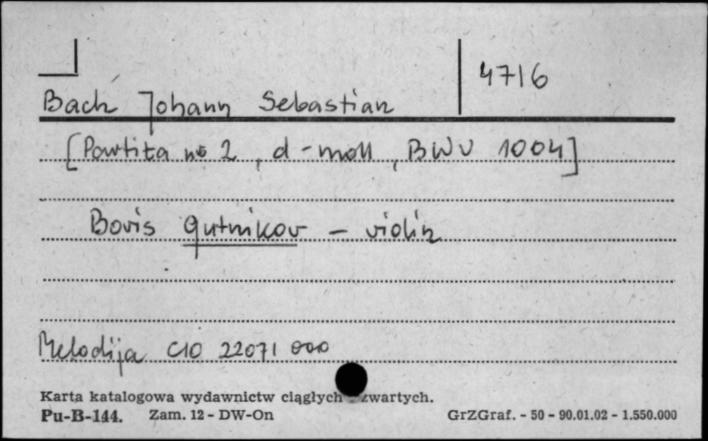 4716
Bach Johann Sebastian
[Partita nº 2, d-moll, BWV 1004]
Boris Gutnikov - violin
Melodija C10 22071 000
Karta katalogowa wydawnictw ciągłych zwartych.
Pu-B-144. Zam. 12 - DW-On GrZGraf. - 50 - 90.01.02 - 1.550.000